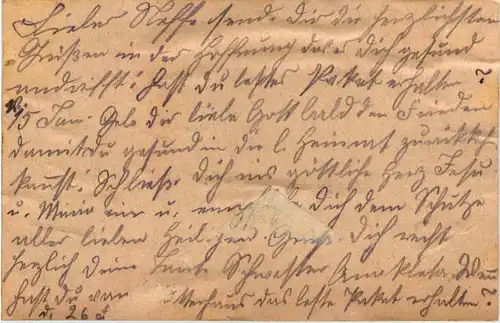 Lieber Neffe sende dir die herzlichsten
Grüßen in der Hoffnung das er Dich gesund
andrifft! Hast du letztes Paket erhalten?
v. 15 Jan. Gebe dir liebe Gott bald den Frieden
damit du gesund in die l. Heimat zurückkehren
kannst! Schließe Dich ins göttliche Herz Jesu
u. Maria ein u. dich dem Schutze
aller lieben Heil. Dich recht
herzlich deine Tante Schwester Anakleta.
hast du von das letzte Paket erhalten?
v. 26